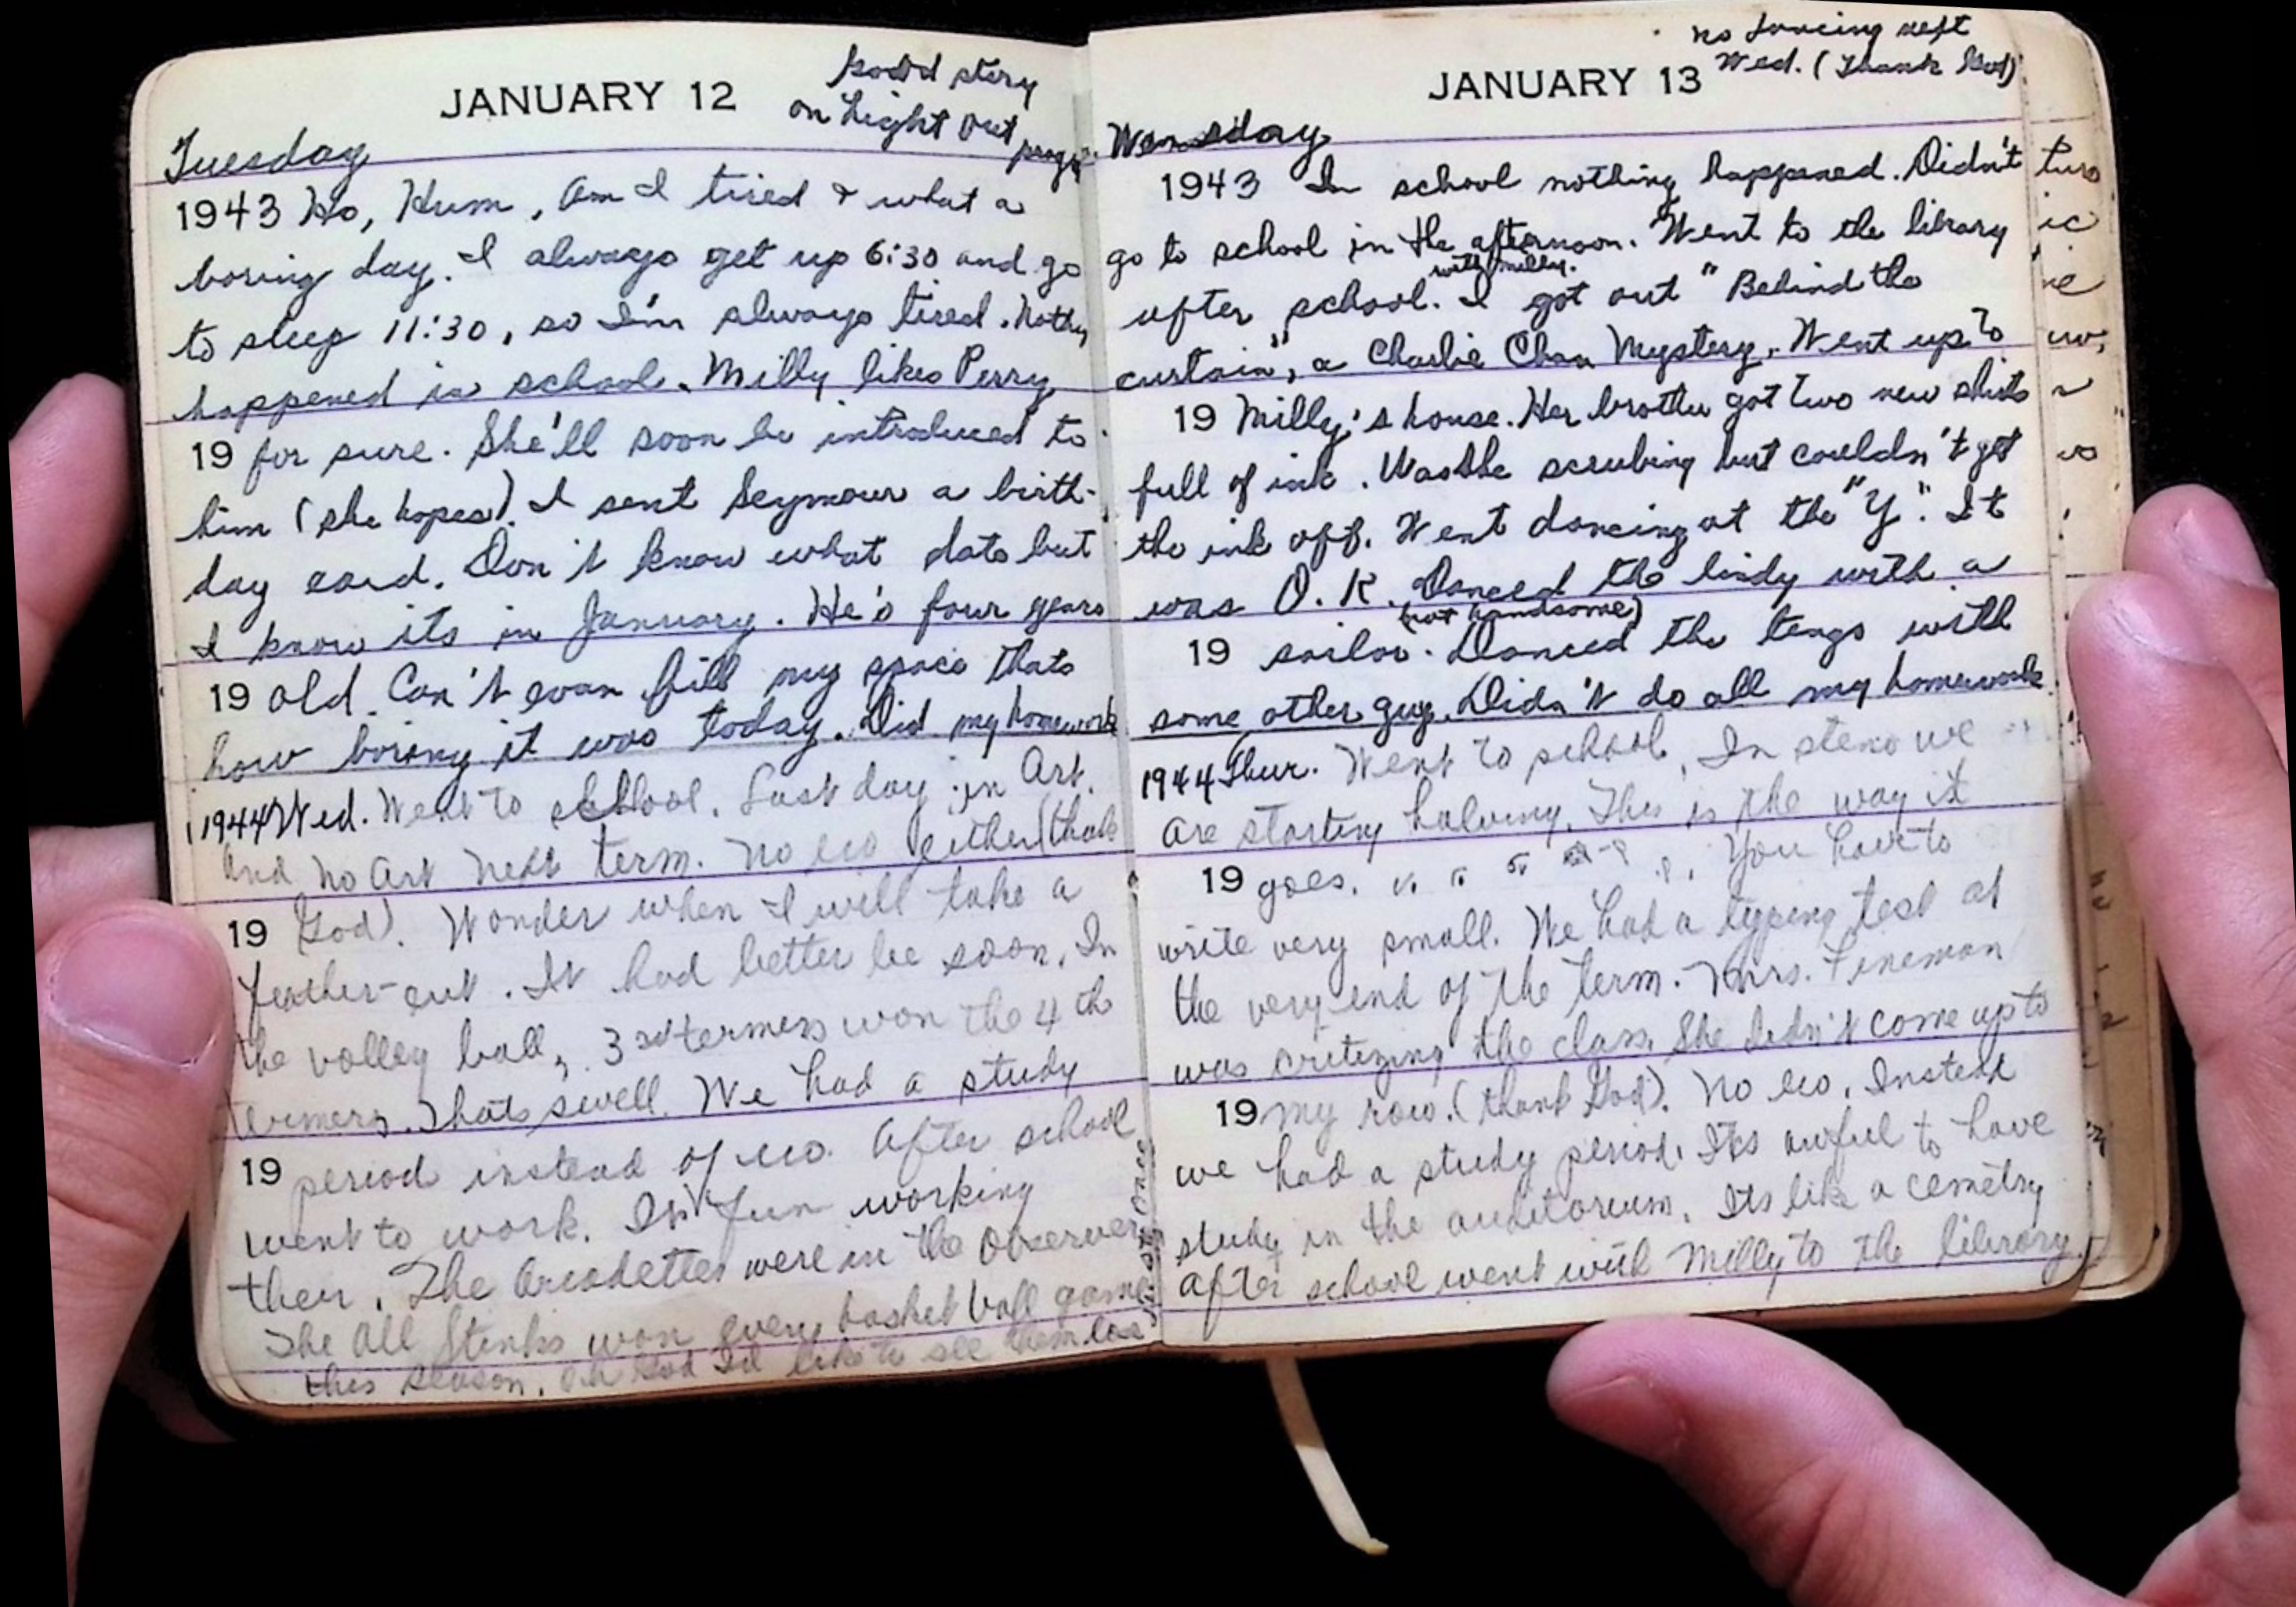 JANUARY 12
Good story
on Light Out
Tuesday
1943 Ho, Hum, Am I tired & what a
boring day. I always get up 6:30 and go
to sleep 11:30, so I'm always tired. Nothing
happened in school. Milly likes Perry
19 for sure. She'll soon be introduced to
him (she hopes). I sent Seymour a birth-
day card. Don't know what date but
I know its in January. He's four years
19 old. Can't even fill my space thats
how boring it was today. Did my homework
1944 Wed. Went to school. Last day in Art.
And no Art next term. No eco either (thank
19 God). Wonder when I will take a
feather-cut. It had better be soon. In
the volley ball, 3rd termers won the 4th
termers. Thats swell. We had a study
19 period instead of eco. After school
went to work. Isn't fun working
their. The Arcadettes were in the Observer.
The All Stinks won every basket ball game
this season. Oh God I'd like to see them lose
just once
JANUARY 13
no dancing next
Wed. (Thank God)
Wensday
1943 In school nothing happened. Didn't
go to school in the afternoon. Went to the library
with milly.
after school. I got out "Behind the
curtain", a Charlie Chan Mystery. Went up to
19 Milly's house. Her brother got two new shirts
full of ink. Was she scrubing but couldn't get
the ink off. Went dancing at the "Y". It
was O.K. Danced the lindy with a
(not handsome)
19 sailor. Danced the tango with
some other guy. Didn't do all my homework.
1944 Thur. Went to school. In steno we
are starting halving. This is the way it
19 goes. You have to
write very small. We had a typing test at
the very end of the term. Mrs. Fineman
was critizing the class. She didn't come up to
19 my row. (thank God). No eco. Instead
we had a study period. Its awful to have
study in the auditorium. Its like a cemetry
After school went with Milly to the library.
two
ic